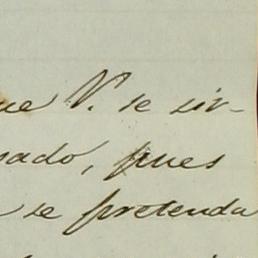 ue V. se sir-
sado, pues
se pretenda